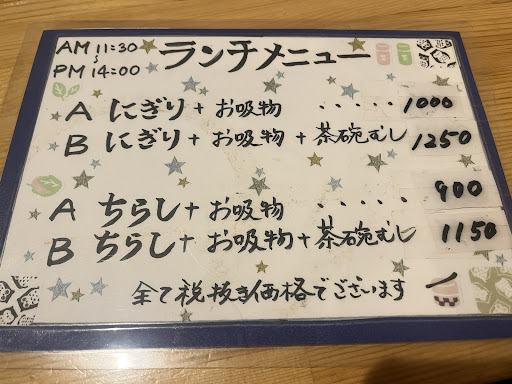 AM 11:30 ランチメニュー
~
PM 14:00
A にぎり + お吸物 ・・・・・ 1000
B にぎり + お吸物 + 茶碗むし 1250
A ちらし + お吸物 ・・・・・ 900
B ちらし + お吸物 + 茶碗むし 1150
全て税抜き価格でございます